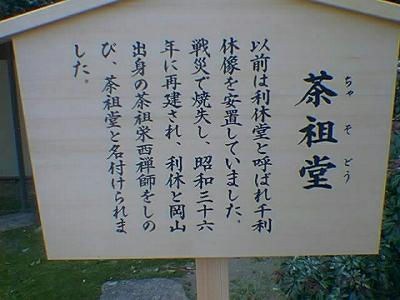 茶祖堂
ちゃそどう
以前は利休堂と呼ばれ千利
休像を安置していました。
戦災で焼失し、昭和三十六
年に再建され、利休と岡山
出身の茶祖栄西禅師をしの
び、茶祖堂と名付けられま
した。